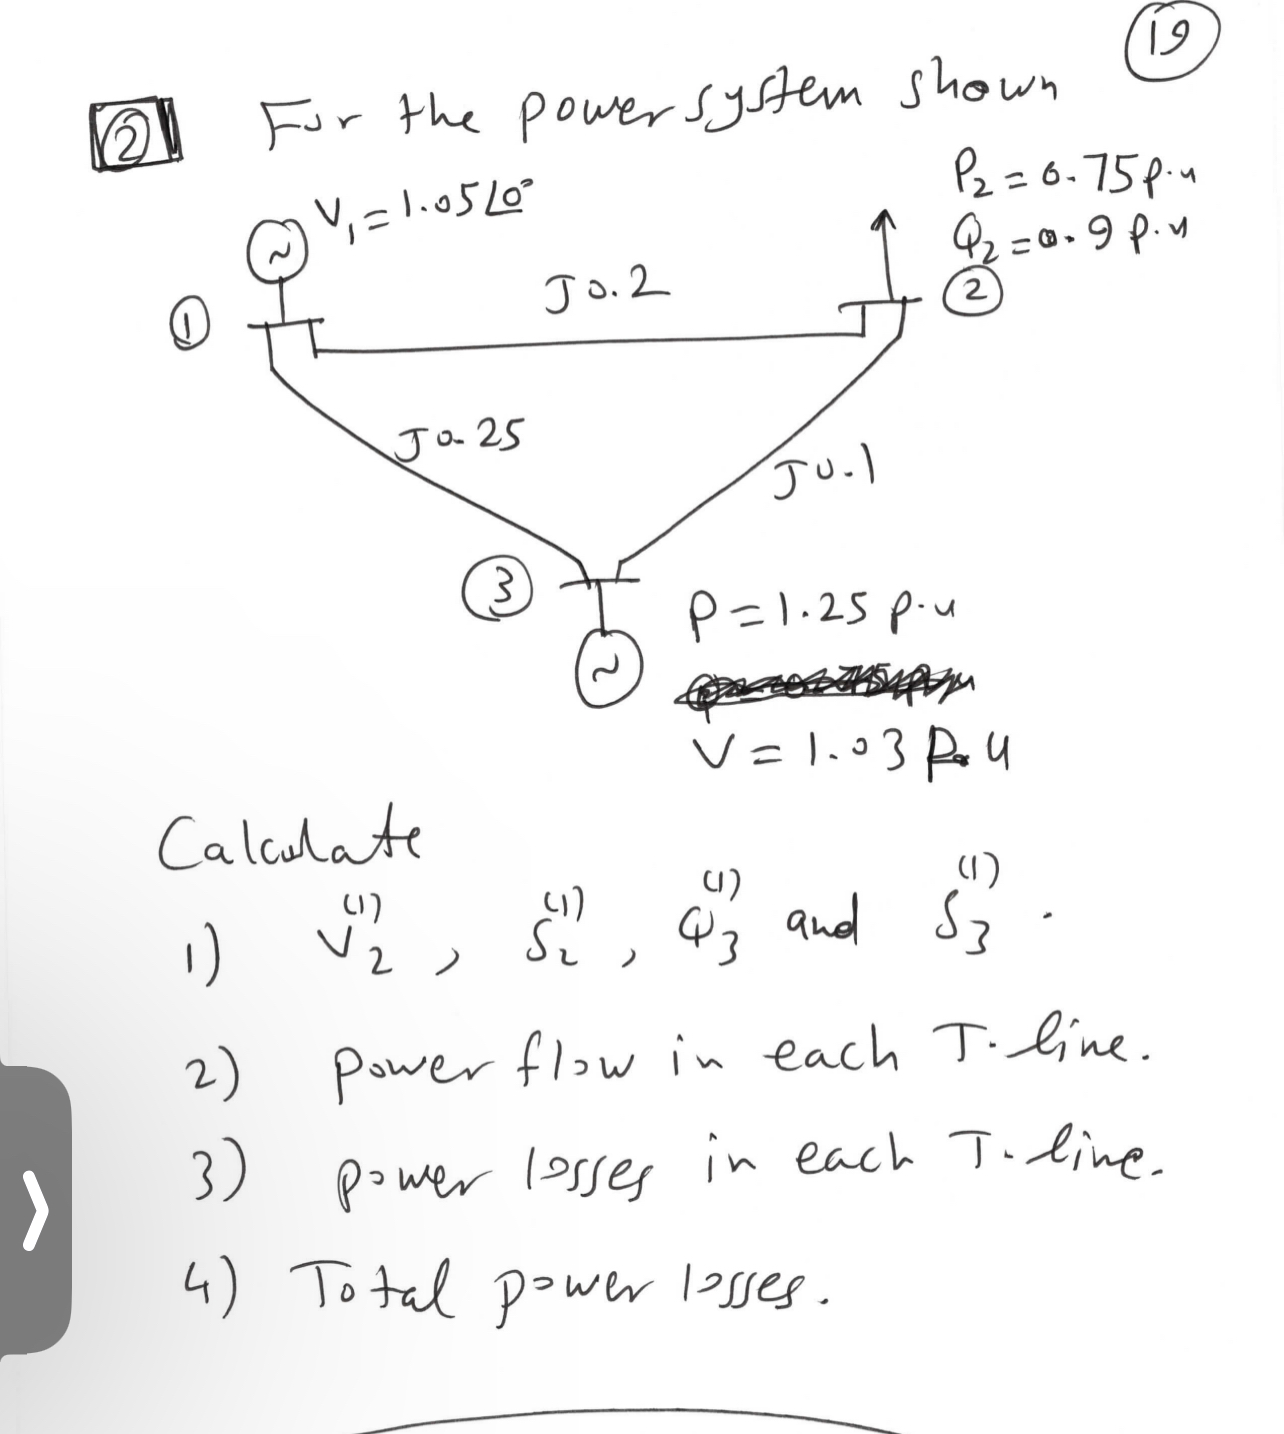 19
2 For the power system shown
V₁ = 1.05∠0°
P₂ = 0.75 p.u
Q₂ = 0.9 p.u
J0.2
1
2
J0.25
J0.1
3
P = 1.25 p.u
V = 1.03 p.u
Calculate
1) V₂⁽¹⁾, δ₂⁽¹⁾, Q₃⁽¹⁾ and δ₃⁽¹⁾.
2) power flow in each T. line.
3) power losses in each T. line.
4) Total power losses.